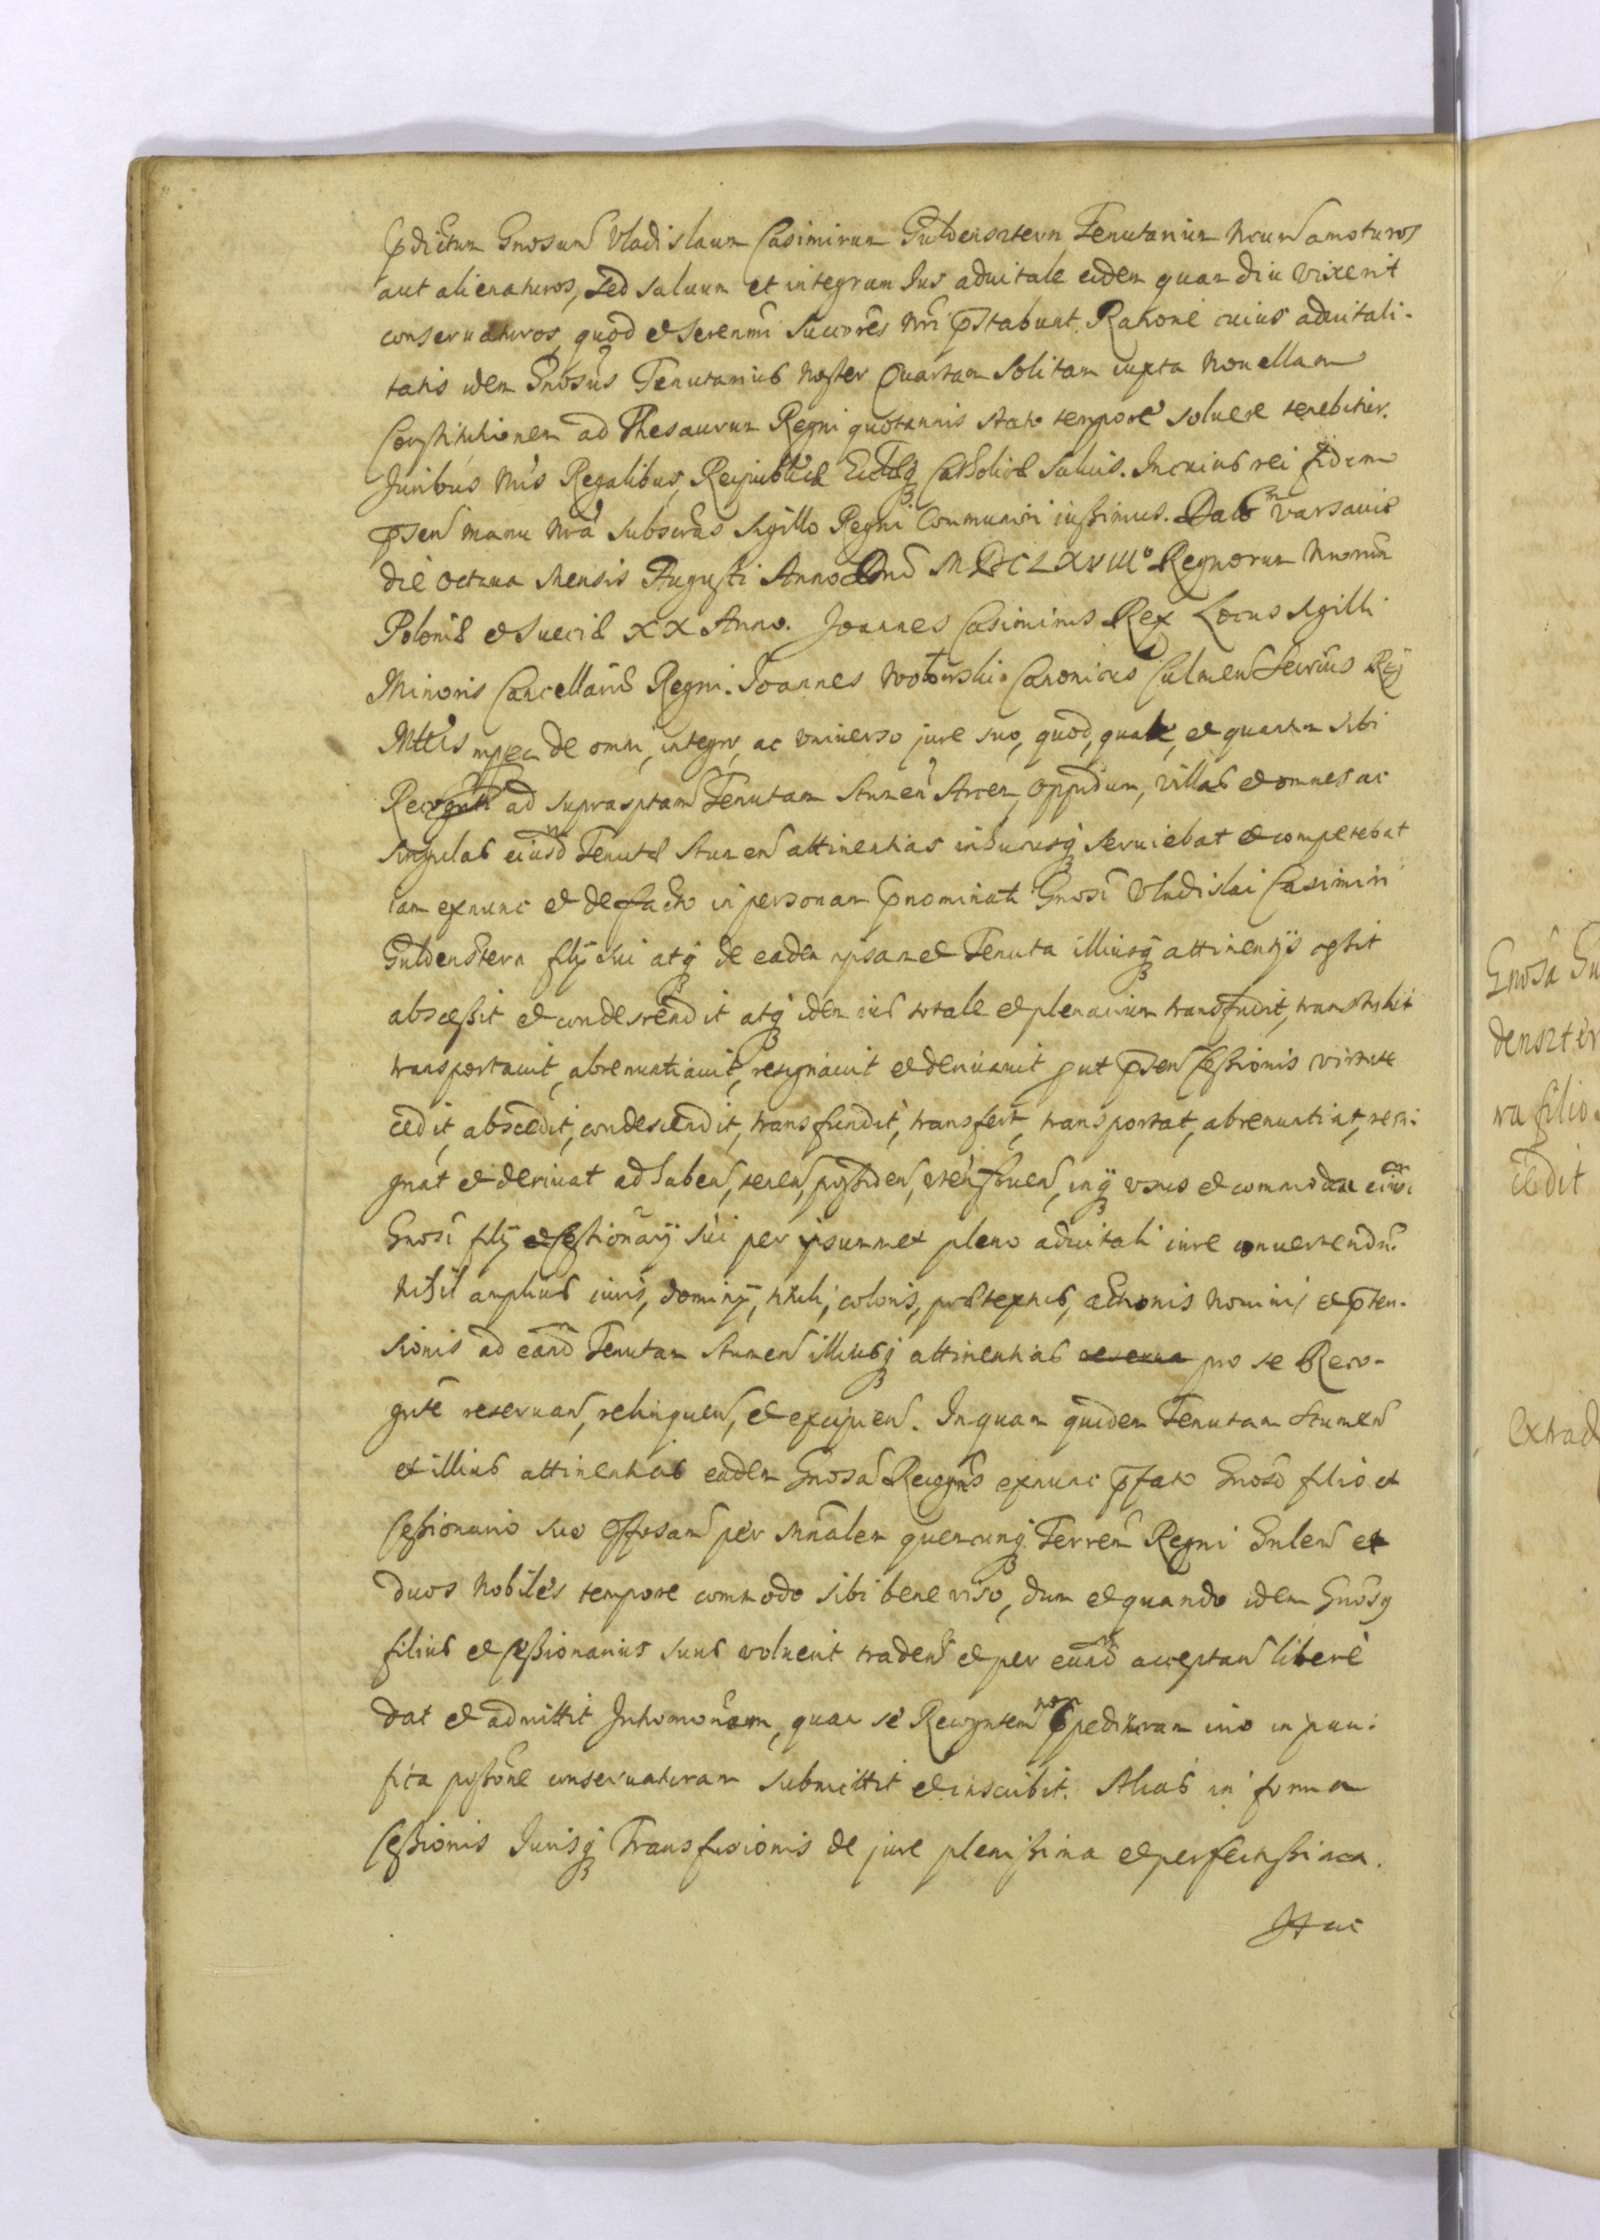 pdictum Gnosum Vladislaum Casimirum Guldensztern Tenutarium Nrum amoturos
aut alienaturos, sed saluum et integrum Jus aduitale eidem quam diu vixerit
conseruaturos, quod et Serenmi Succores Nri pstabunt. Ratione cuius aduitali-
tatis idem Gnosus Tenutarius Noster Quartam solitam iuxta Nouellam
Constitutionem ad Thesaurum Regni quotannis stato tempore soluere tenebitur.
Juribus Nris Regalibus, Reipublicæ Ecclæq Catholicæ saluis. In cuius rei fidem
psen manu Nra subscras sigillo Regni Communiri iussimus. Dat in Varsauiæ
die octaua Mensis Augusti Anno Dni MDCLXVIIIo Regnorum Nrorum
Poloniæ et Sueciæ XX Anno. Joannes Casimirus Rex Locus Sigilli
Minoris Cancellariæ Regni. Joannes Canonicus Culmen Secrius Rey
Mttis mpea de omni, integro, ac vniuerso jure suo, quod, quale, et quantum sibi
Recognti ad suprasptam Tenutam Stumen Arcem, Oppidum, Villas et omnes ac
singulas eiusd Tenutæ Stumen attinentias inhucusq seruiebat et competebat
iam exnunc et defacto in personam pnominati Gnosi Vladislai Casimiri
Guldenstern filij sui atq de eadem ipsamet Tenuta illiusq attinentijs cessit
abscessit et condescendit atq idem ius totale et plenarium transfudit, transtulit
transportauit, abrenuntiauit, resignauit et deriuauit put psen cessionis virtute
cedit, abscedit, condescendit, transfundit, transfert, transportat, abrenuntiat, resi-
gnat et deriuat ad haben, tenen, possiden, vten fruen, inq vsus et commoda eiusd
Gnosi filij et cessionarij sui per ipsummet pleno aduitali iure conuertendu.
Nihil amplius iuris, dominij, tituli, coloris, prætextus, actionis nominis et pten-
sionis ad eand Tenutam Stumen illiusq attinentias pro se Reco-
gnte reseruan, relinquen, et excipien. In quam quidem Tenutam Stumen
et illius attinentias eadem Gnosa Recogns exnunc pfato Gnoso filio et
cessionario suo per Mnalem quemcunq Terrem Regni Gnlem et
duos Nobiles tempore commodo sibi bene viso, dum et quando idem Gnosus
filius et cessionarius suus voluerit traden et per eund acceptan liberè
dat et admittit Intromonem, quam se Recogntem non pedituram imo in paci-
fica possone conseruaturam submittit et inscribit. Alias in forma
Cessionis Jurisq Transfusionis de jure plenissima et perfectissima.
Hac
Gnosa Gu
densztèr
na filio
cedit
extrad